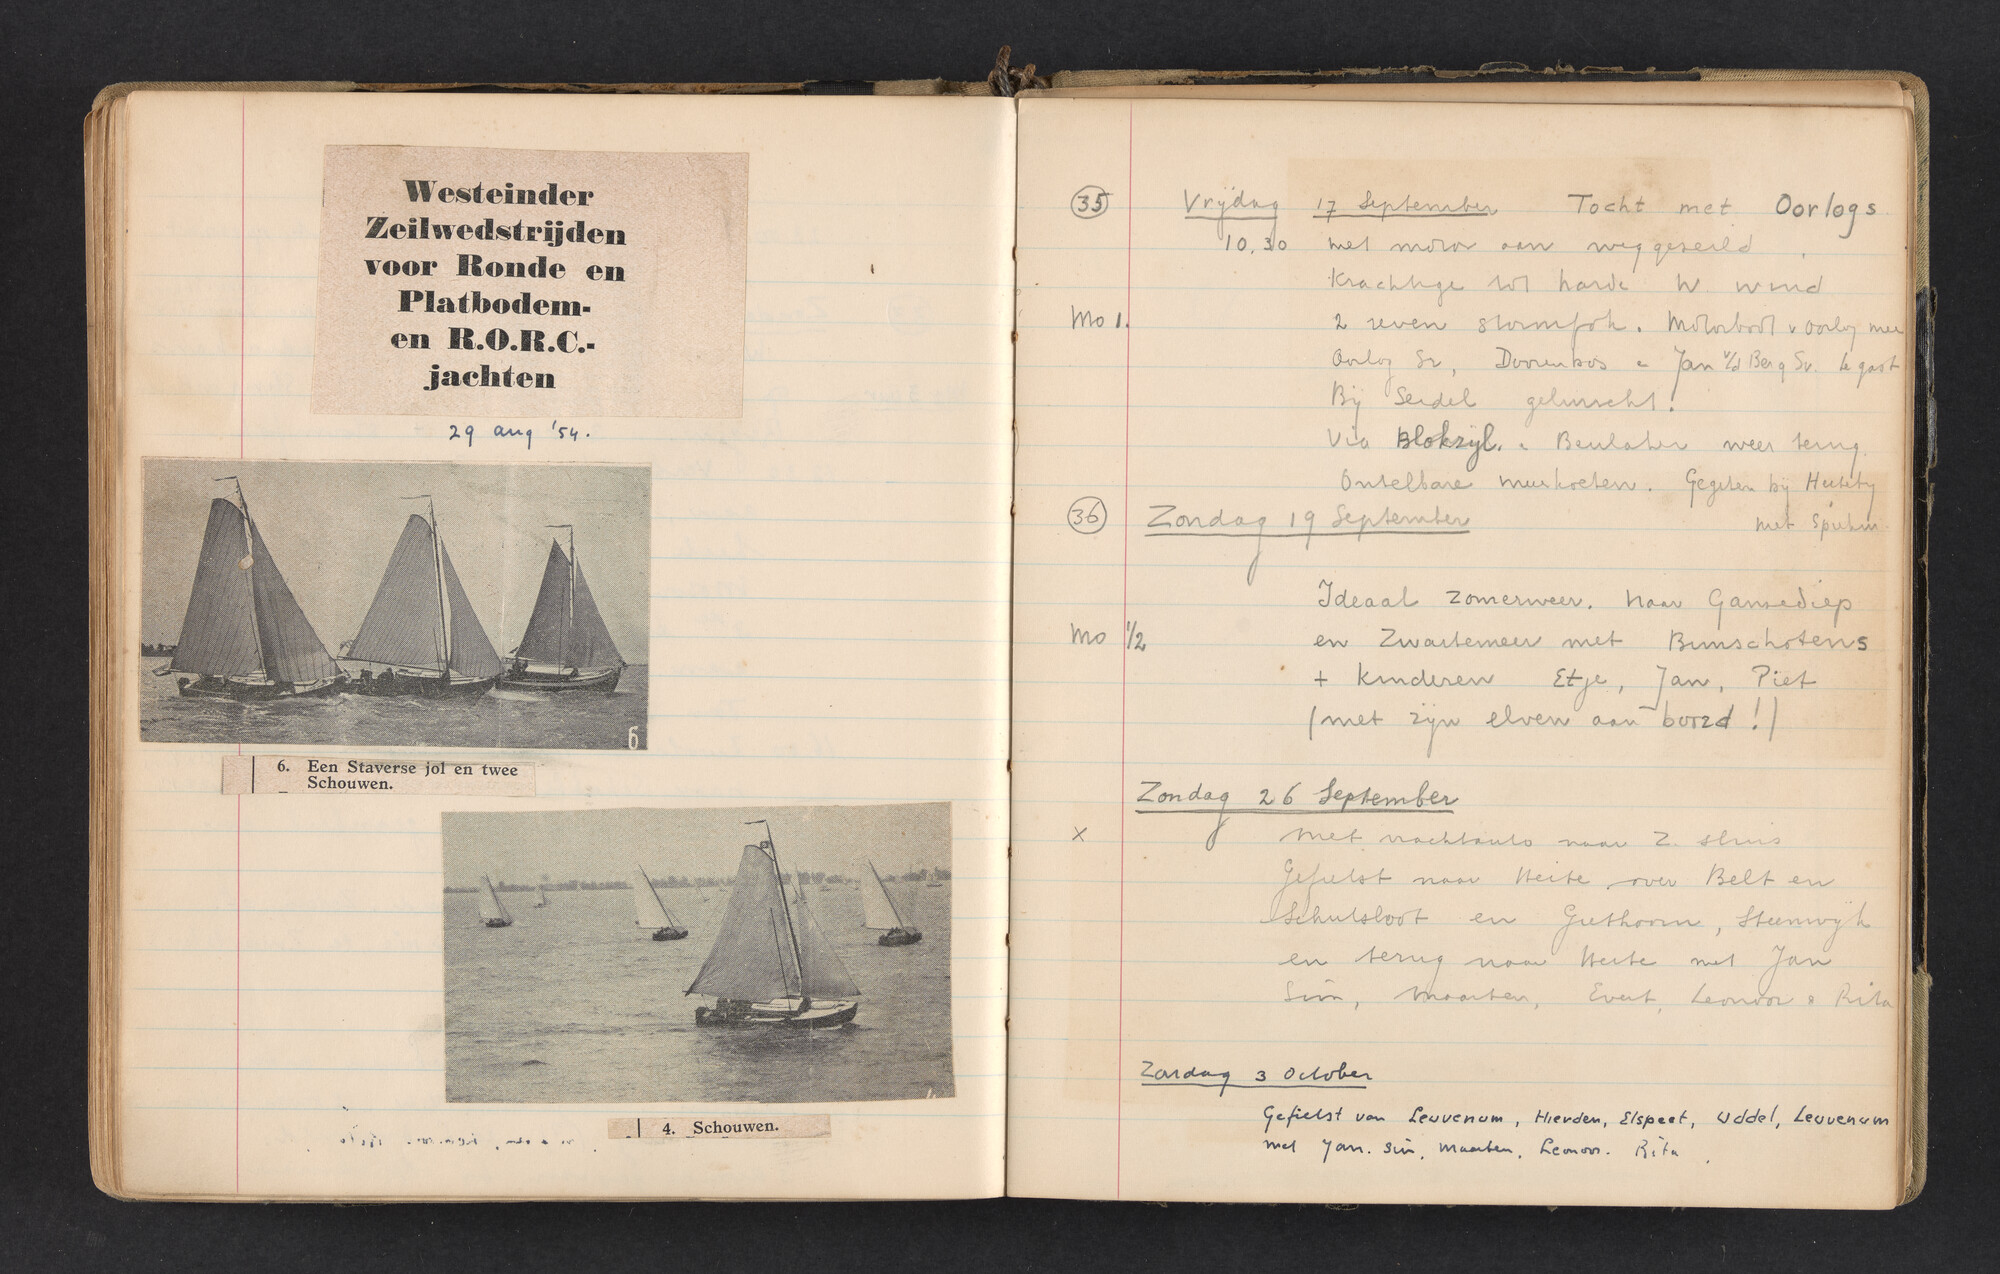 Westeinder
Zeilwedstrijden
voor Ronde en
Platbodem-
en R.O.R.C.-
jachten
29 aug '54.
6
6. Een Staverse jol en twee
Schouwen.
4. Schouwen.
35 Vrijdag 17 September Tocht met Oorlogs
10.30 met motor aan weggezeild
Krachtige tot harde W wind
Mo 1. 2 reven stormfok. Motorboot v Oorlog mee
Oorlog Sr, Doorenbos e Jan v/d Berg Sr. te gast
Bij Seidel geluncht!
Via Blokzijl. e Beulaker weer terug
Ontelbare meerkoeten. Gegeten bij
met
36 Zondag 19 September
Ideaal zomerweer. Naar Ganzediep
Mo 1/2 en Zwartemeer met Bunschotens
+ kinderen Etje, Jan, Piet
(met zijn elven aan boord!)
Zondag 26 September
x Met vrachtauto naar Z. sluis
Gefietst naar Heite over Belt en
Schutsloot en Giethoorn, Steenwijk
en terug naar Heite met Jan
Sim, Maarten, Evert, Leonoor e Rita
Zondag 3 October
Gefietst van Leuvenum, Hierden, Elspeet, Uddel, Leuvenum
met Jan. Sim, Maarten, Leonoor. Rita.